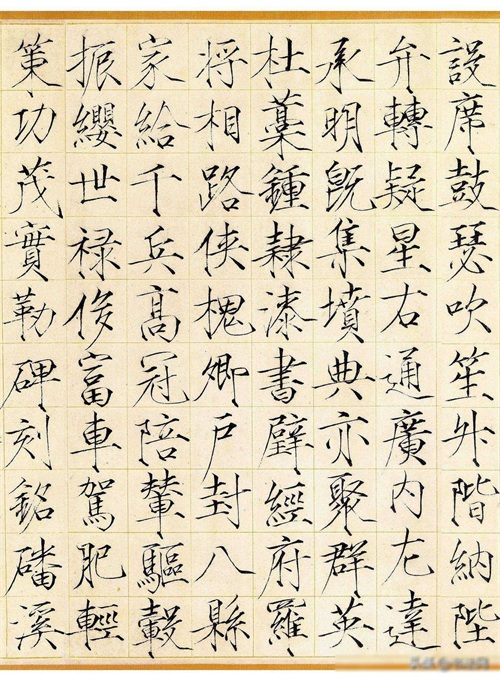 設席鼓瑟吹笙升階納陛
弁轉疑星右通廣內左達
承明既集墳典亦聚群英
杜藁鍾隸漆書壁經府羅
将相路俠槐卿戶封八縣
家給千兵高冠陪輦驅轂
振纓世禄侈富車駕肥輕
策功茂實勒碑刻銘磻溪